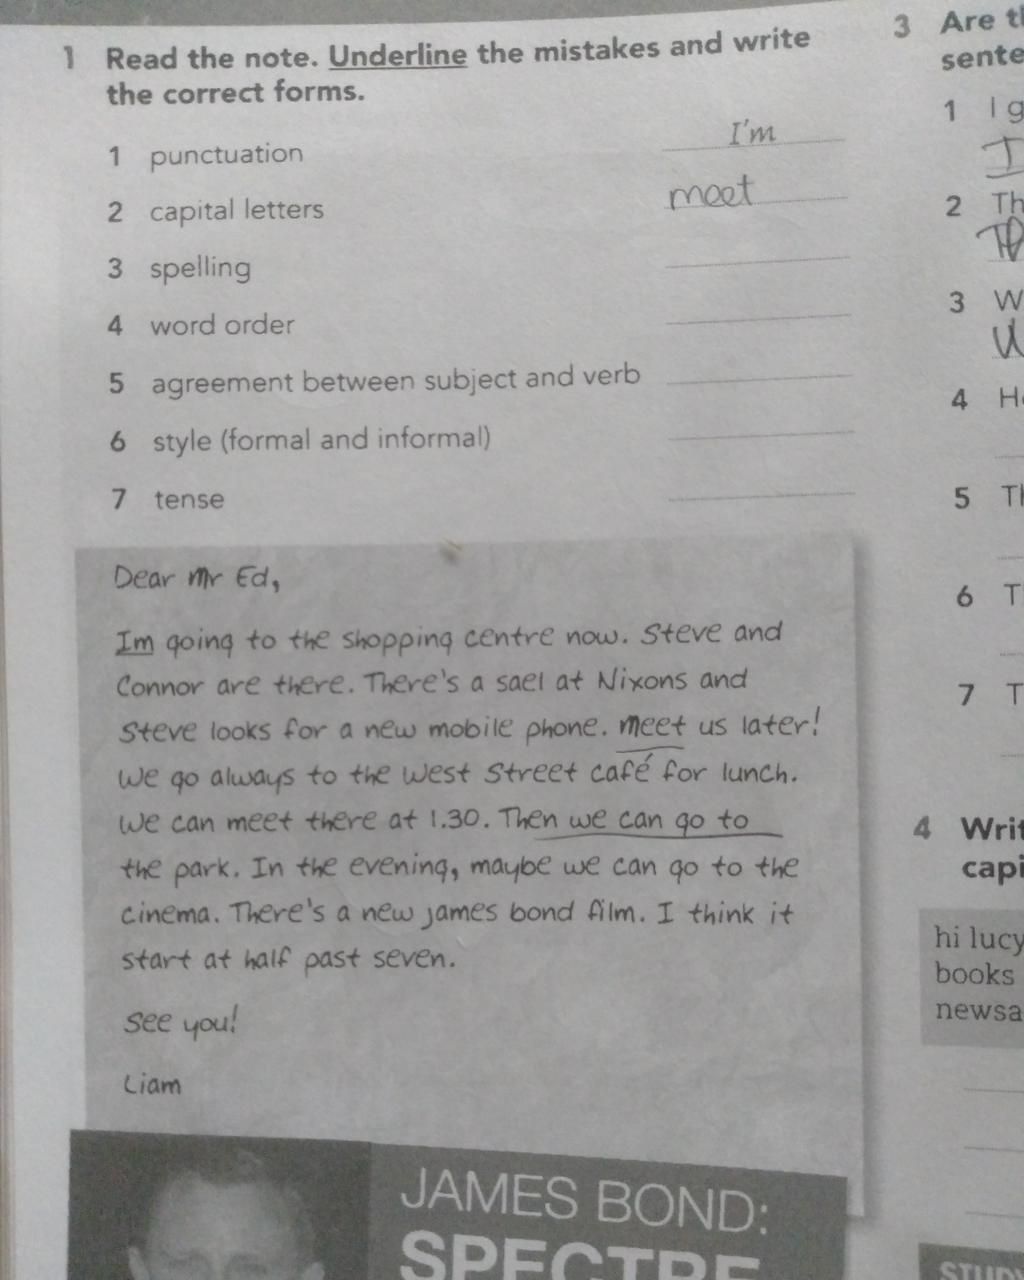 1 Read the note. Underline the mistakes and write
the correct forms.
1 punctuation I'm
2 capital letters meet
3 spelling
4 word order
5 agreement between subject and verb
6 style (formal and informal)
7 tense
Dear Mr Ed,
Im going to the shopping centre now. Steve and
Connor are there. There's a sael at Nixons and
Steve looks for a new mobile phone. Meet us later!
We go always to the West Street café for lunch.
We can meet there at 1.30. Then we can go to
the park. In the evening, maybe we can go to the
cinema. There's a new james bond film. I think it
start at half past seven.
See you!
Liam
JAMES BOND:
SPECTRE
3 Are
1 I
2
3
4
5
6
7
4
hi lucy
books